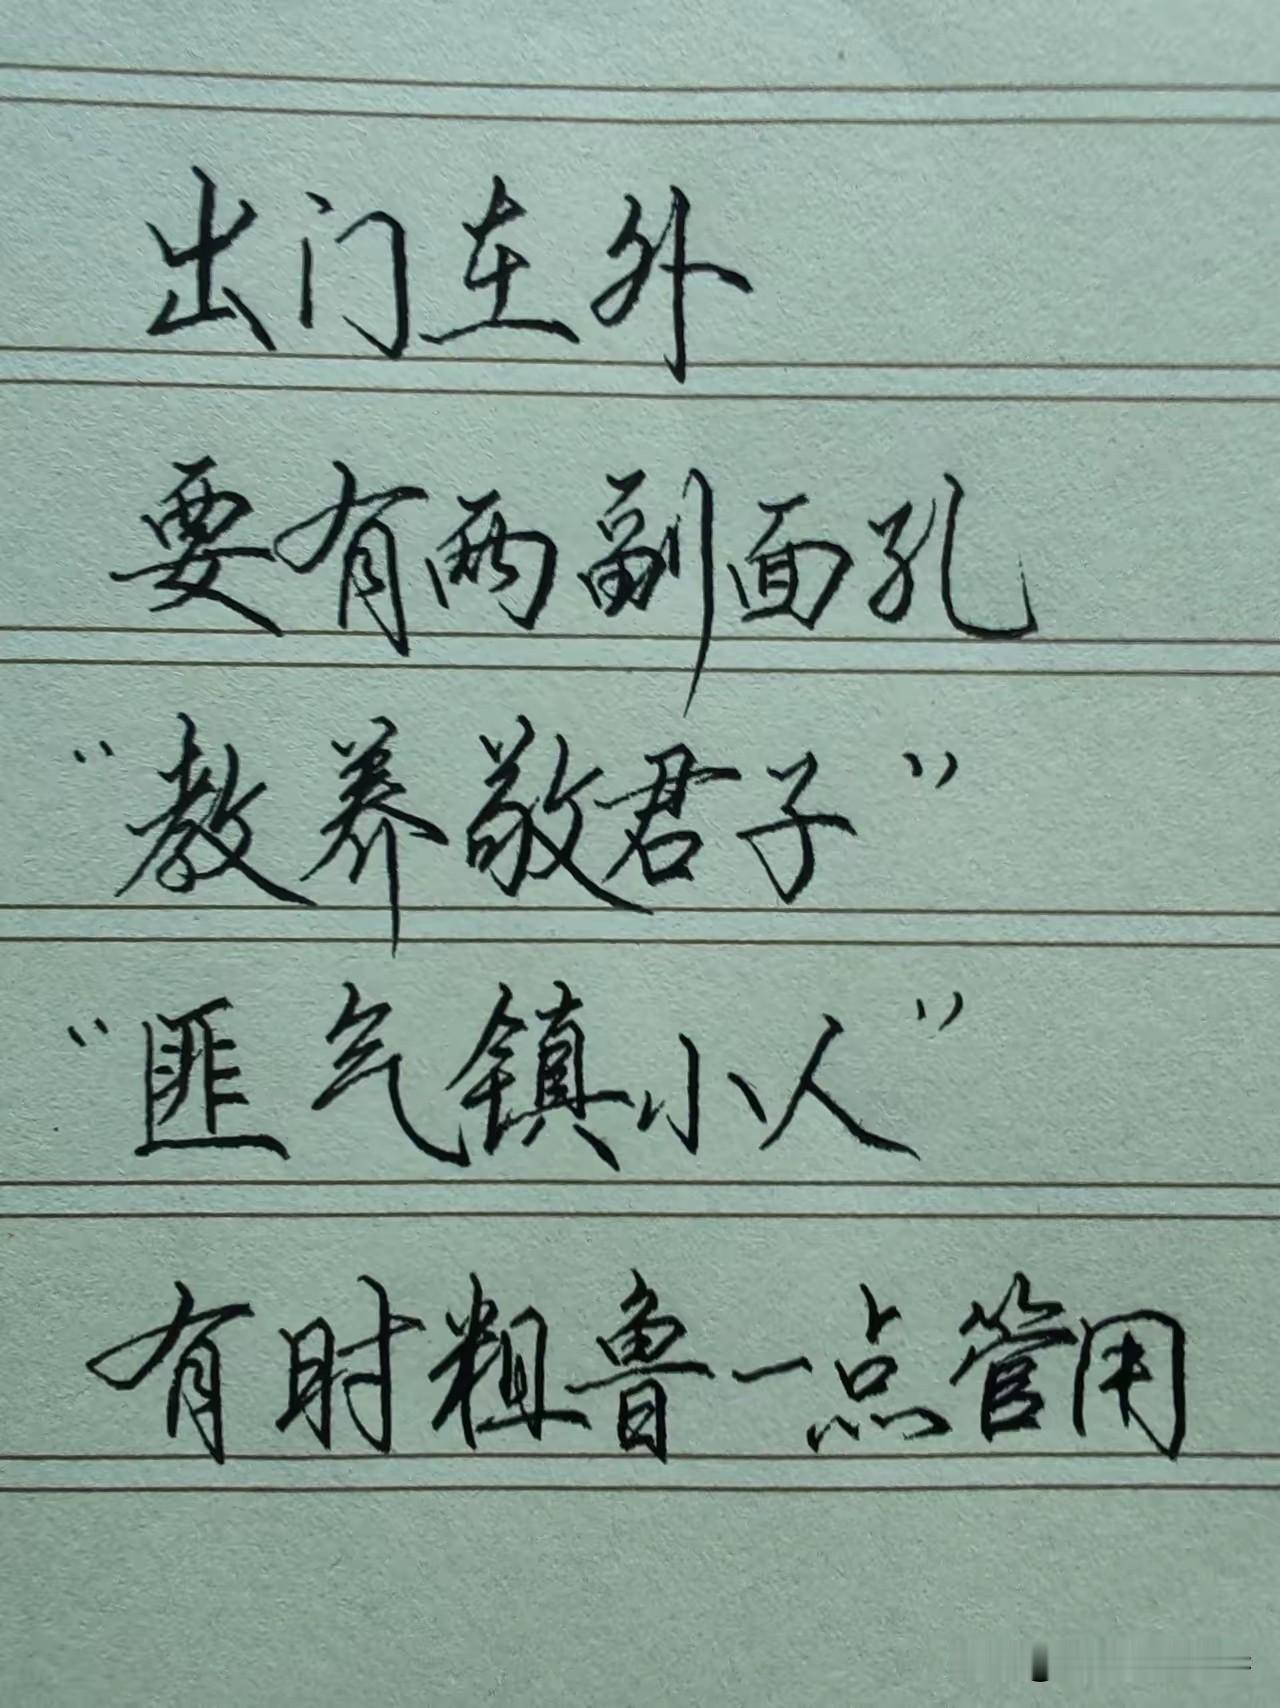 出门在外
要有两副面孔
“教养敬君子”
“匪气镇小人”
有时粗鲁一点管用